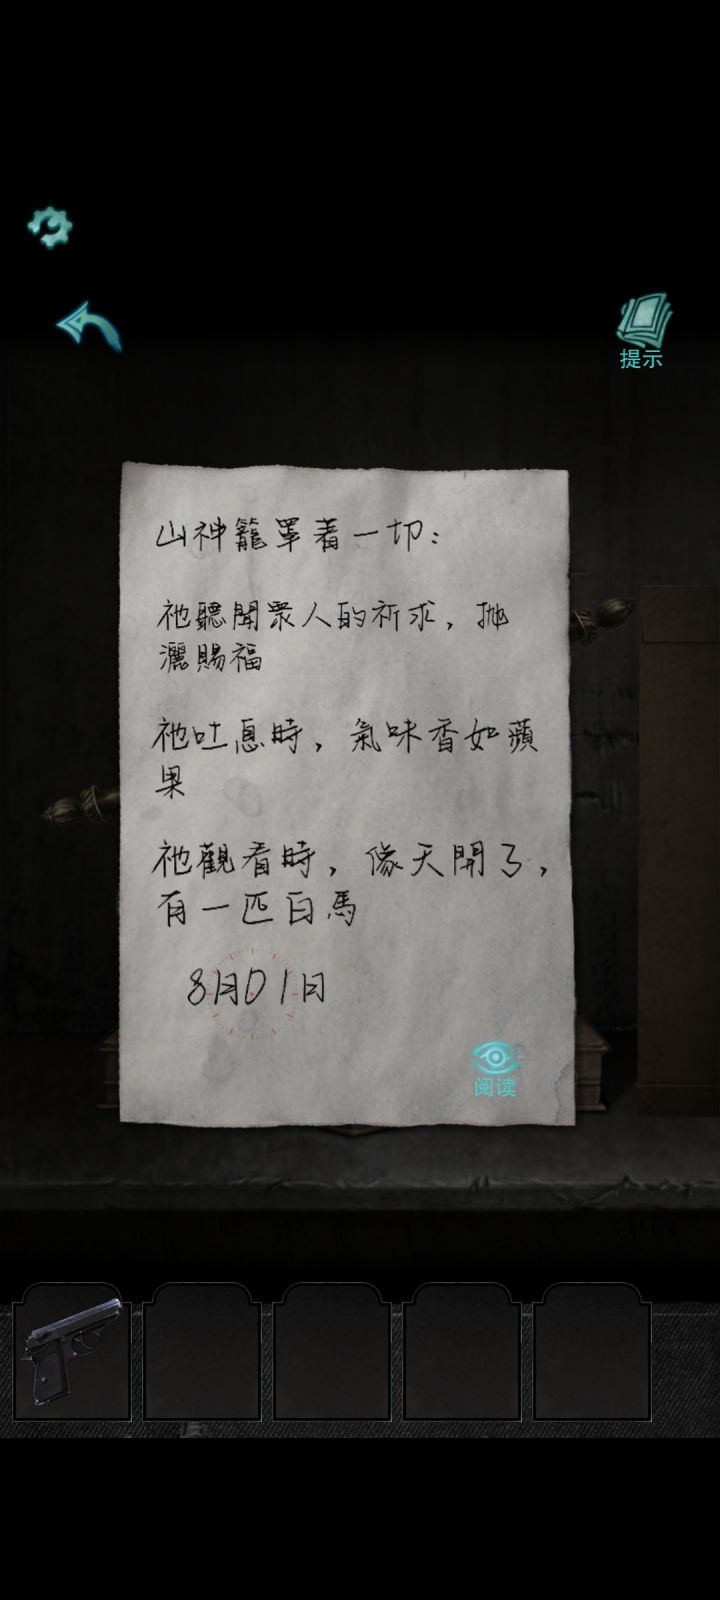 提示
山神籠罩着一切：
祂聽聞眾人的祈求，拋
灑賜福
祂吐息時，氣味香如蘋
果
祂觀看時，像天開了，
有一匹白馬
8月01日
阅读